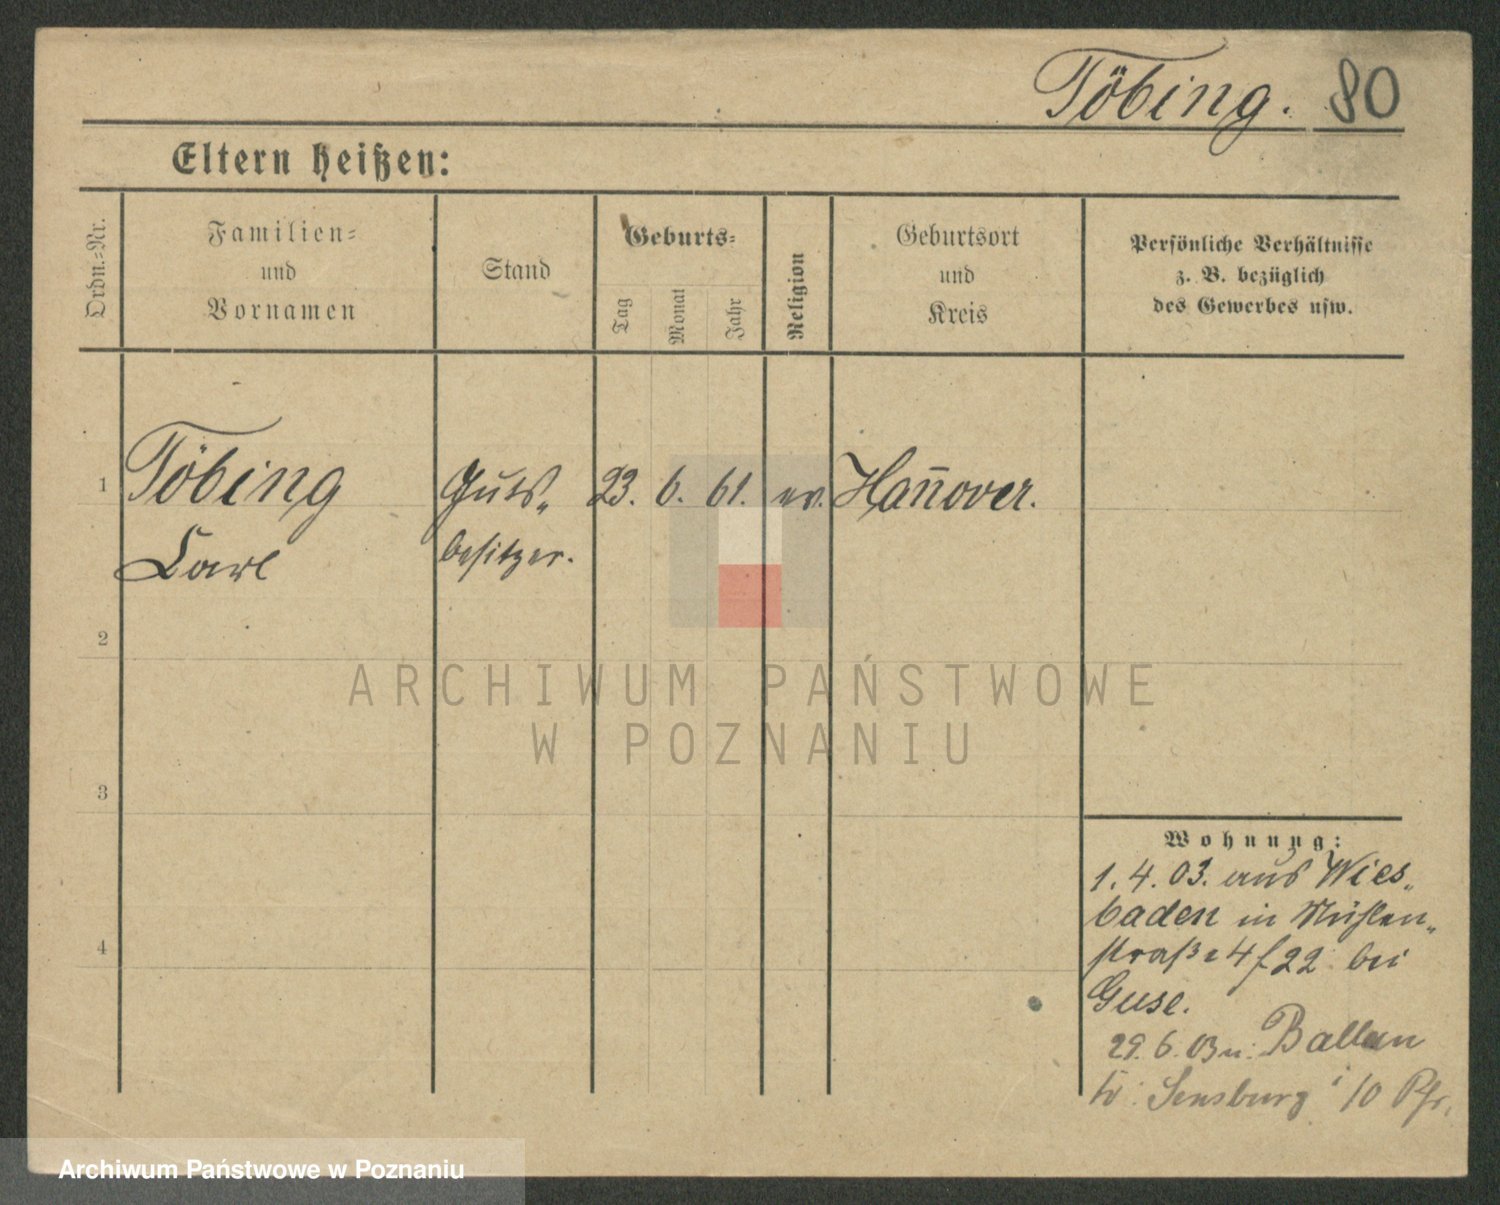 Töbing. 80
Eltern heißen:
Ordn.=Nr.
Familien=
und
Vornamen
Stand
Geburts=
Tag
Monat
Jahr
Religion
Geburtsort
und
Kreis
Persönliche Verhältnisse
z. B. bezüglich
des Gewerbes usw.
1 Töbing Guts„ 23. 6. 61. ev. Han̄over.
Carl besitzer.
2
3
4
ARCHIWUM PAŃSTWOWE
W POZNANIU
Wohnung:
1. 4. 03. aus Wies„
baden in Mühlen„
straße 4 f 22 bei
Guse.
29. 6. 03 n.
Sensburg 10
Archiwum Państwowe w Poznaniu